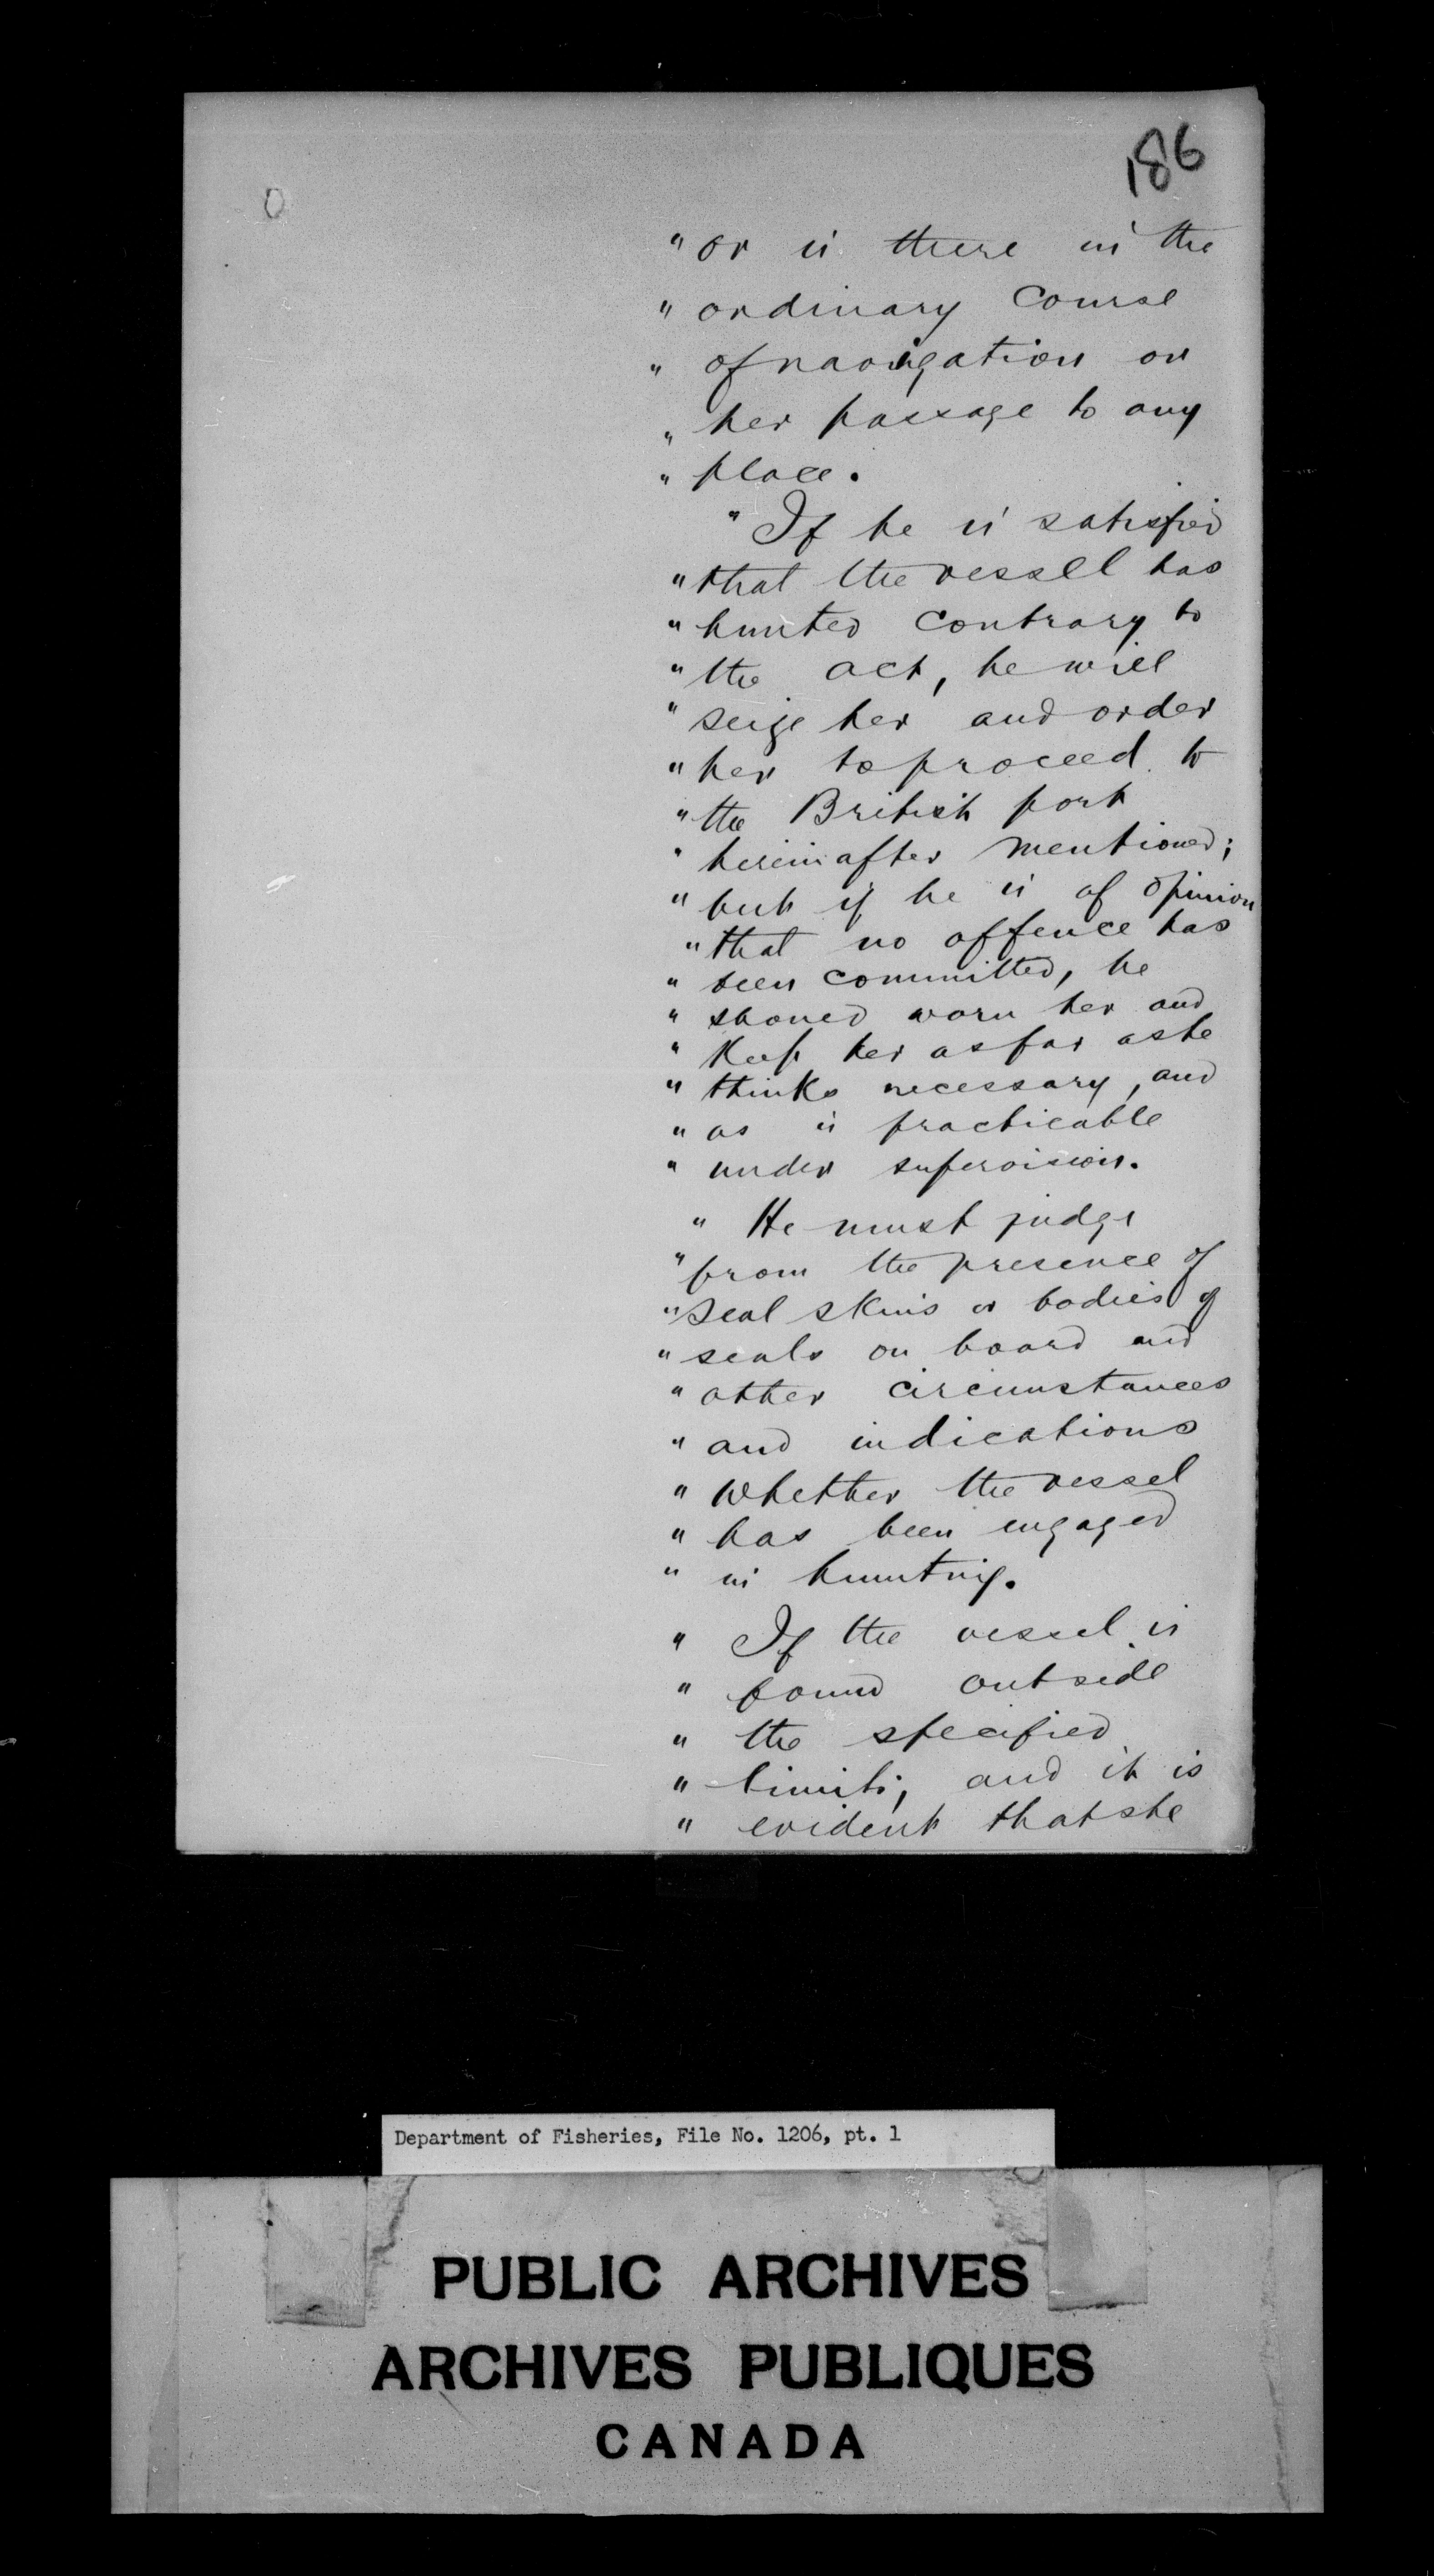 186
" or is there in the
" ordinary course
" of navigation on
" her passage to any
" place.
" If he is satisfied
" that the vessel has
" hunted contrary to
" the act, he will
" seize her and order
" her to proceed to
" the British port
" hereinafter mentioned;
" but if he is of opinion
" that no offence has
" been committed, he
" should warn her and
" keep her as far as he
" thinks necessary, and
" as is practicable
" under supervision.
" He must judge
" from the presence of
" seal skins or bodies of
" seals on board and
" other circumstances
" and indications
" whether the vessel
" has been engaged
" in hunting.
" If the vessel is
" found outside
" the specified
" limits, and it is
" evident that she
Department of Fisheries, File No. 1206, pt. 1
PUBLIC ARCHIVES
ARCHIVES PUBLIQUES
CANADA